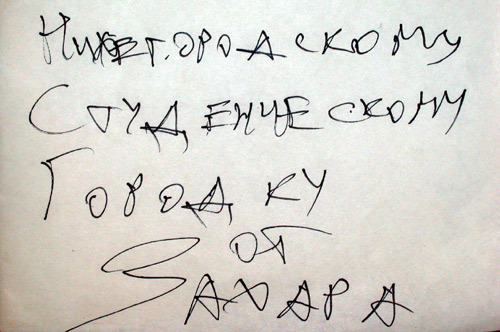 Нижегородскому
Студенческому
Городку
от
Захара